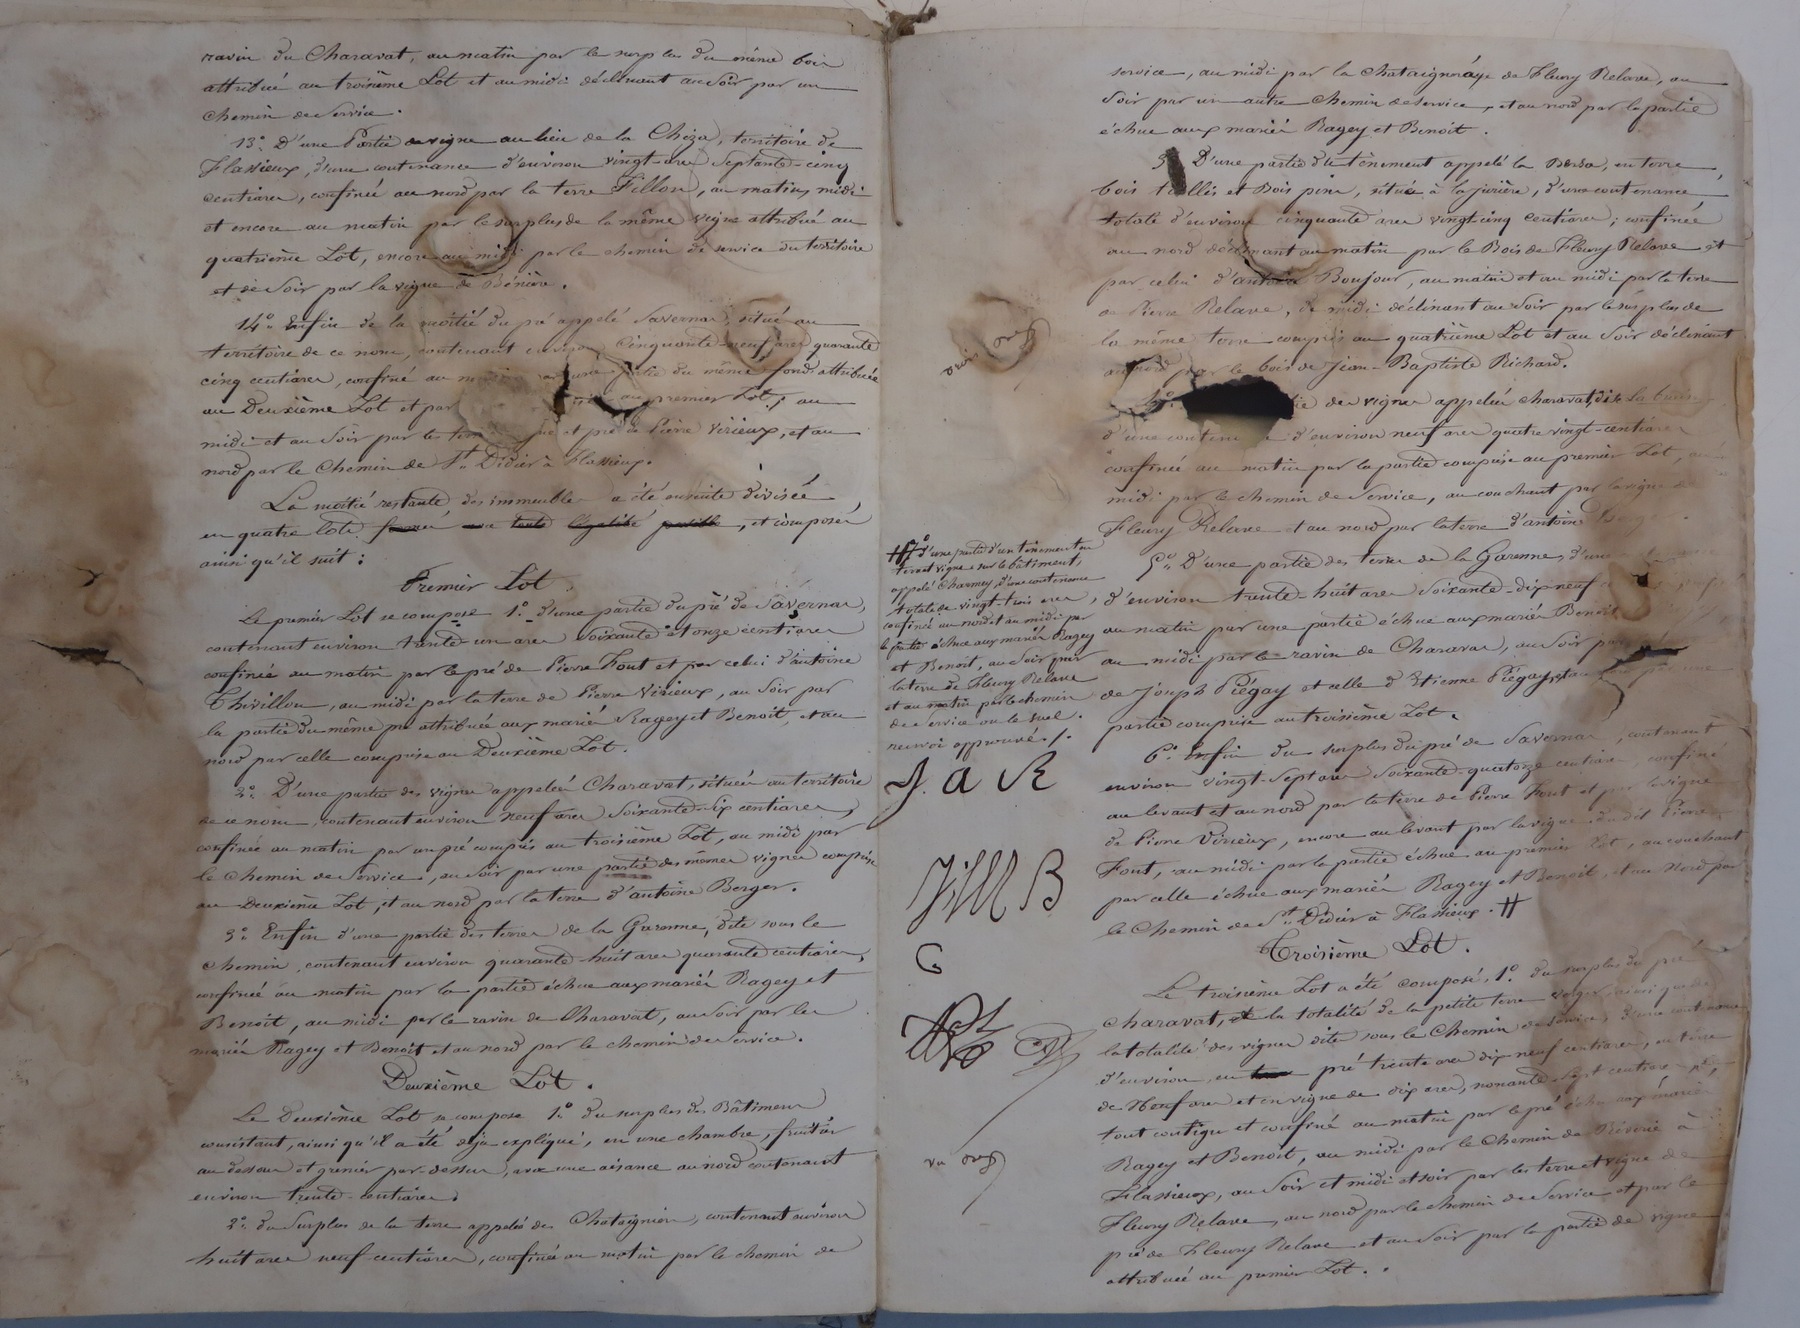 ravin du Charavat, au matin par le surplus du même bois
attribué au troisième Lot et au midi déclinant au Soir par un
Chemin de Service.
13.° D'une Partie de vigne au lieu de la Chiza, territoire de
Flassieux, d'une contenance d'environ vingt-ares Septante-cinq
centiares, confinée au nord par la terre Fillon, au matin, midi
et encore au matin par le surplus de la même vigne attribué au
quatrième Lot, encore au midi par le chemin de service du territoire
et de Soir par la vigne de Bénière.
14.° Enfin de la moitié du pré appelé Savernas, situé au
territoire de ce nom, contenant environ Cinquante-neuf ares quarante
cinq centiares, confiné au une partie du même fonds attribuée
au Deuxième Lot et par au premier Lot; au
midi et au Soir par les et pré de Pierre Virieux, et au
nord par le Chemin de St. Didier à Flassieux.
La moitié restante des immeubles a été ensuite divisée
en quatre lots formés avec toute l'égalité possible, et composés
ainsi qu'il suit:
Premier Lot.
Le premier Lot se compose 1.° d'une partie du pré de Savernas,
contenant environ trente-un ares Soixante et onze centiares
confinée au matin par le pré de Pierre Font et par celui d'Antoine
Thivillon, au midi par la terre de Pierre Virieux, au Soir par
la partie du même pré attribuée aux mariés Ragey et Benoit, et au
nord par celle comprise au Deuxième Lot.
2.° D'une partie des vignes appelées Charavat, située au territoire
de ce nom, contenant environ neuf ares Soixante-dix centiares,
confinée au matin par un pré compris au troisième Lot, au midi par
le Chemin de Service, au Soir par une partie des mêmes vignes comprise
au Deuxième Lot, et au nord par la terre d'antoine Berger.
3.° Enfin d'une partie des terres de la Garenne, dite sous le
chemin, contenant environ quarante-huit ares quarante centiares,
confinée au matin par la partie échue aux mariés Ragey et
Benoit, au midi par le ravin de Charavat, au Soir par les
mariés Ragey et Benoit et au nord par le chemin de Service.
Deuxième Lot.
Le Deuxième Lot se compose 1.° du surplus des Bâtimens
consistant, ainsi qu'il a été déjà expliqué, en une chambre, fruitier
au dessous et grenier par-dessus, avec une aisance au nord contenant
environ trente-centiares.
2.° du Surplus de la terre appelée des Chataigniers, contenant environ
huit ares neuf centiares, confinée au matin par le chemin de
service, au midi par la Chataigneraye de Fleury Relave, au
Soir par un autre Chemin de service, et au nord par la partie
échue aux mariés Ragey et Benoit.
3 D'une partie du tènement appelé la Bersa, en terre
bois taillis et Bois pins, située à la jurière, d'une contenance
totale d'environ cinquante ares vingt-cinq Centiares; confinée
au nord déclinant au matin par le Bois de Fleury Relave et
par celui d'antoine Boujour, au matin et au midi par la terre
de Pierre Relave, de midi déclinant au Soir par le surplus de
la même terre compris au quatrième Lot et au Soir déclinant
au nord par le bois de Jean-Baptiste Richard.
4.° de vignes appelées Charavat, dite
d'une d'environ neuf ares quatre vingt-centiares
confinée au matin par la partie comprise au premier Lot, au
midi par le chemin de Service, au couchant par la vigne de
Fleury Relave et au nord par la terre d'antoine Berger.
5.° D'une partie des terres de la Garenne, d'une
d'environ trente-huit ares Soixante-dix-neuf
au matin par une partie échue aux mariés Benoit
au midi par le ravin de Charavat, au Soir par
de Joseph Piégay et celle d'Etienne Piégay, et au
partie comprise au troisième Lot.
6.° Enfin du surplus du pré de Savernas, contenant
environ vingt-Sept ares Soixante-quatorze centiares, confiné
au levant et au nord par la terre de Pierre Font et par la vigne
de Pierre Virieux, encore au levant par la vigne dudit Pierre
Font, au midi par la partie échue au premier Lot, au couchant
par celle échue aux mariés Ragey et Benoit, et au Nord par
le Chemin de St. Didier à Flassieux. #
Troisième Lot.
Le troisième Lot a été composé, 1.° du surplus du pré
Charavat, et la totalité de la petite terre verger, ainsi que de
la totalité des vignes dite sous le Chemin de Service, d'une contenance
d'environ, en pré trente ares dix-neuf centiares, en terre
de Neuf ares et en vigne de dix ares, nonante-Sept centiares
tout contigu et confiné au matin par le pré échu aux mariés
Ragey et Benoit, au midi par le Chemin de Rivoire à
Flassieux, au Soir et midi et soir par les terre et vigne de
Fleury Relave, au nord par le chemin de Service et par le
pré de Fleury Relave et au Soir par la partie de vigne
attribuée au premier Lot.
# 7.° d'une partie d'un tènement en
terre et vigne sur le bâtiment,
appelé Charmey, d'une contenance
totale de vingt-trois ares,
confiné au nord et au midi par
la partie échue aux mariés Ragey
et Benoit, au Soir par
la terre de Fleury Relave
et au matin par le chemin
de service ou le suel.
renvoi approuvé.
J. a R
B